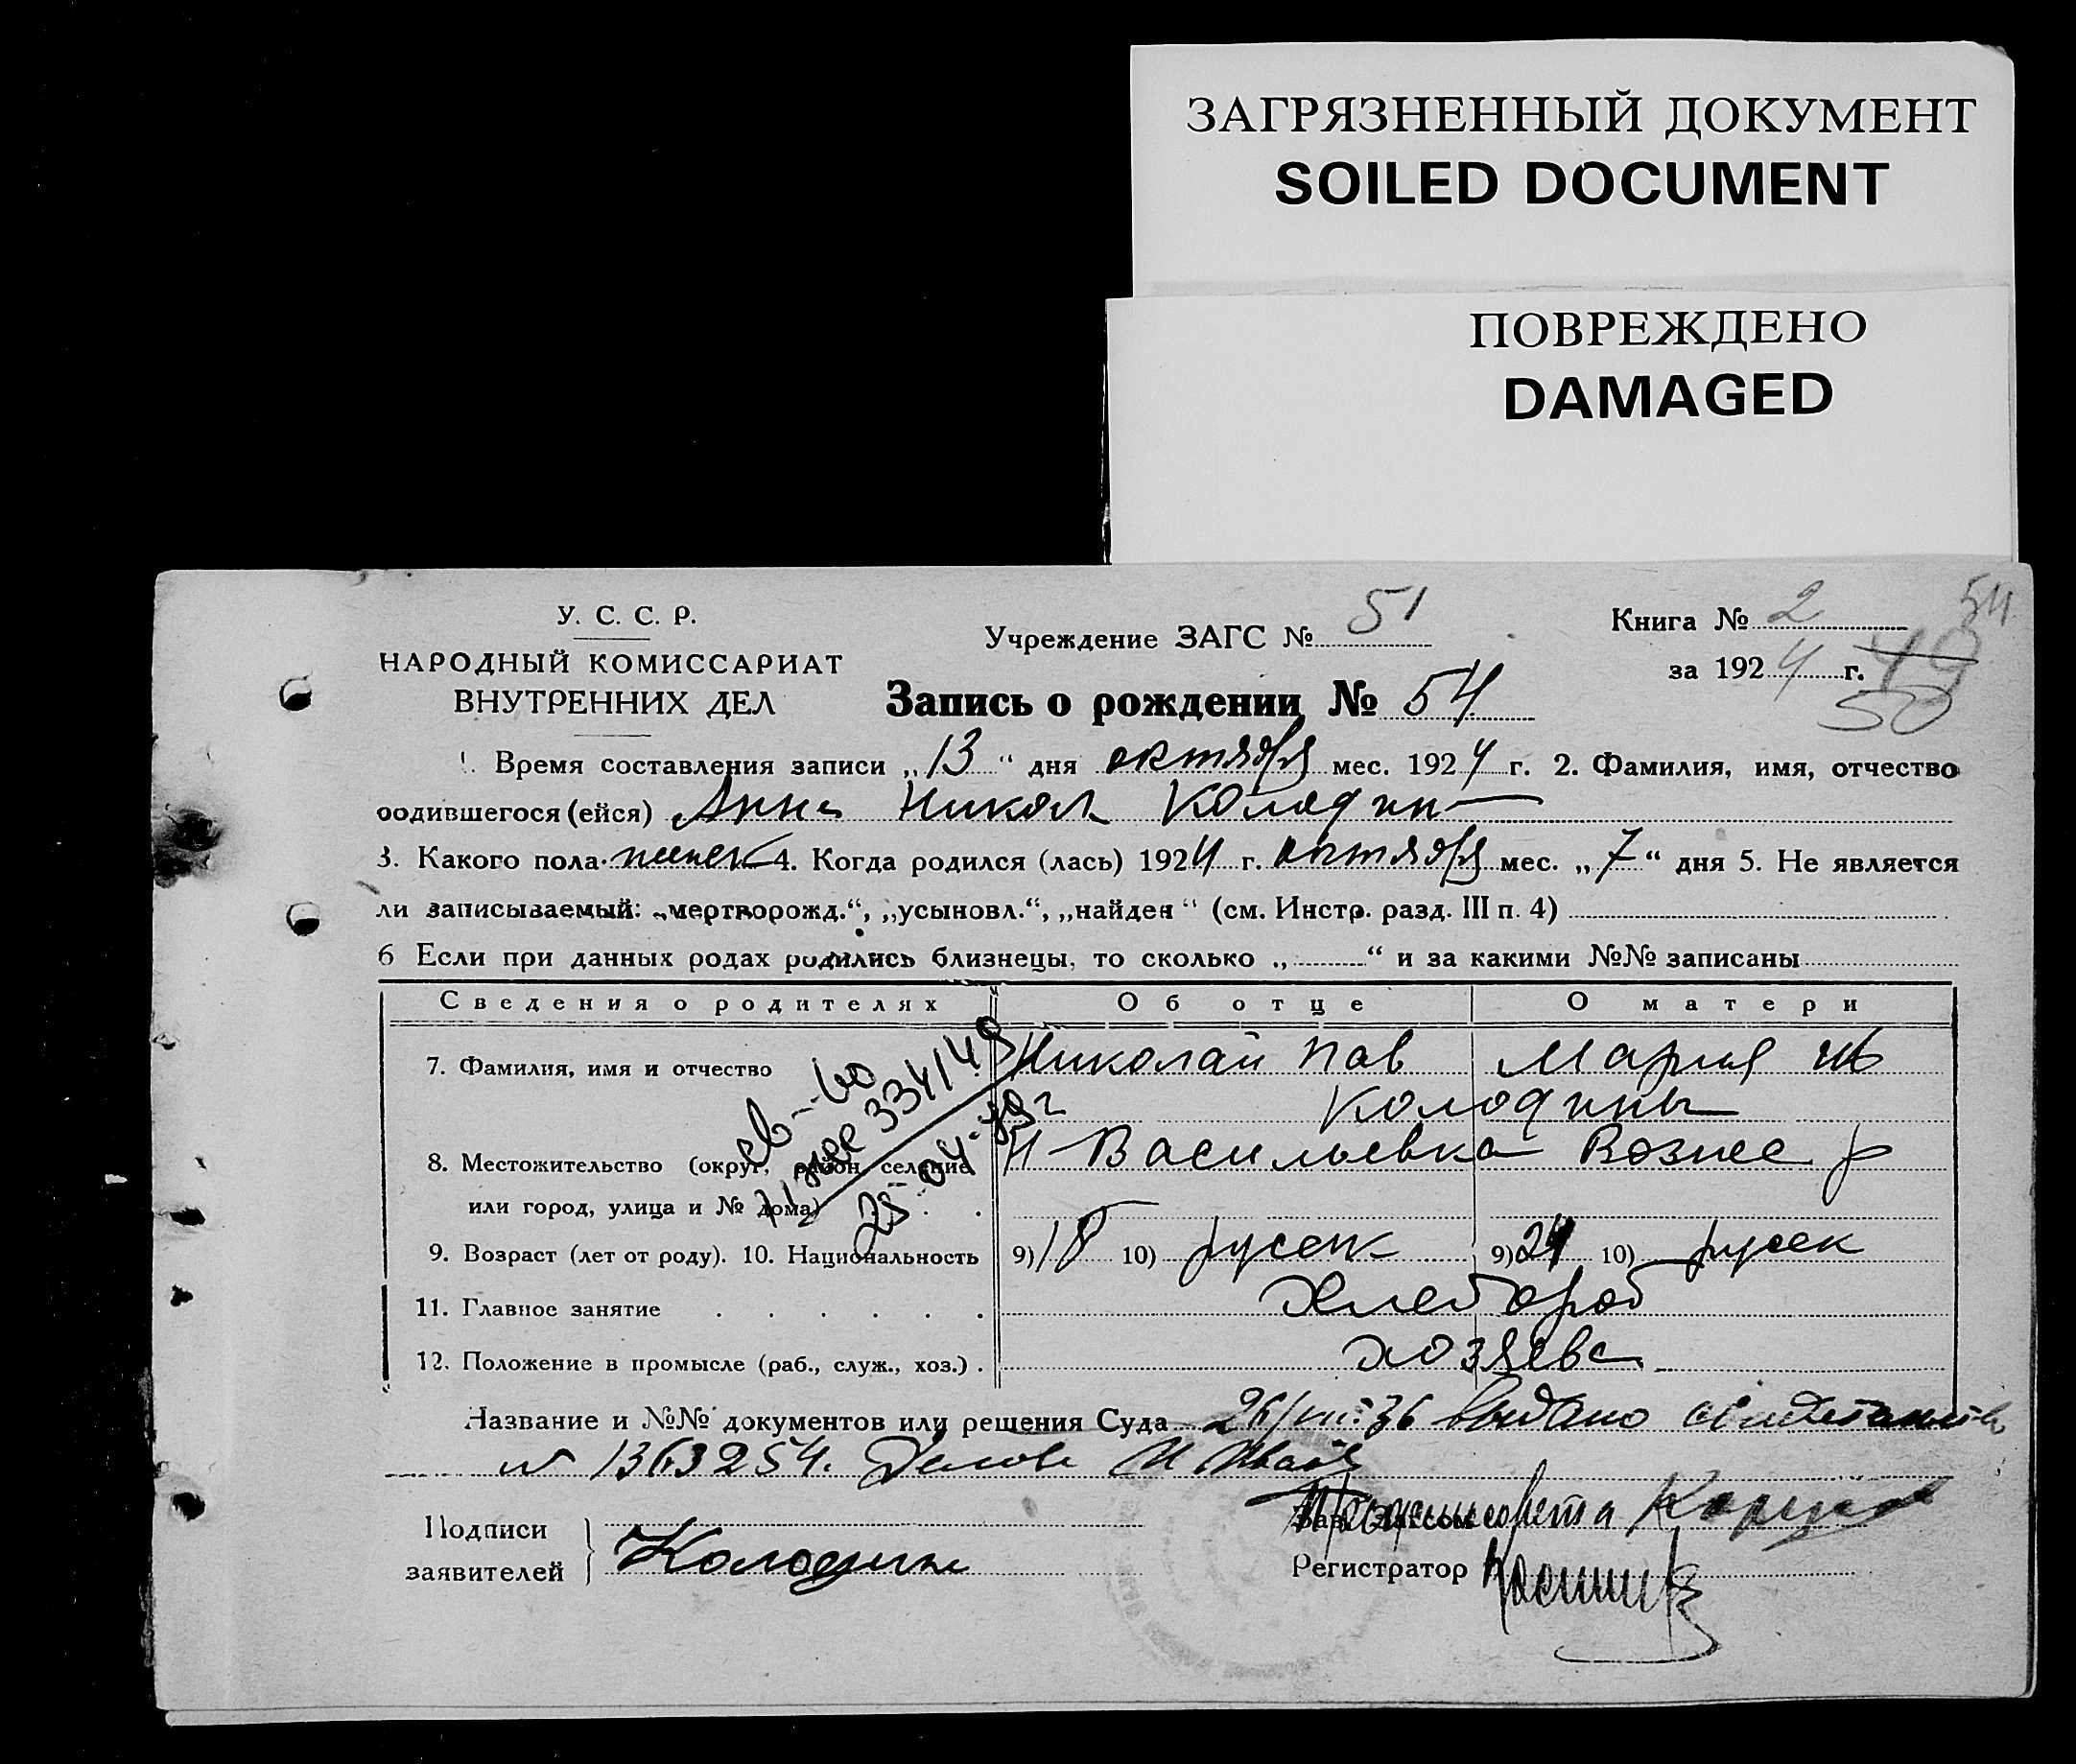 ЗАГРЯЗНЕННЫЙ ДОКУМЕНТ
SOILED DOCUMENT
ПОВРЕЖДЕНО
DAMAGED
У. С. С. Р.
НАРОДНЫЙ КОМИССАРИАТ
ВНУТРЕННИХ ДЕЛ
Учреждение ЗАГС № 51
Книга № 2
54
за 1924 г. 49
50
Запись о рождении № 54
1. Время составления записи „13“ дня октября мес. 1924 г. 2. Фамилия, имя, отчество
родившегося (ейся) Анна Никол Колодин
3. Какого пола женск 4. Когда родился (лась) 1924 г. октября мес. „7“ дня 5. Не является
ли записываемый: „мертворожд.“, „усыновл.“, „найден“ (см. Инстр. разд. III п. 4)
6 Если при данных родах родились близнецы, то сколько „ “ и за какими №№ записаны
Сведения о родителях Об отце О матери
7. Фамилия, имя и отчество Николай Пав Мария
Колодины
8. Местожительство (округ, район, селение Н-Васильевка Вознес р
или город, улица и № дома)
св-во
334149
25-04-89г
9. Возраст (лет от роду). 10. Национальность 9) 18 10) русск 9) 24 10) русск
11. Главное занятие Хлебороб
12. Положение в промысле (раб., служ., хоз.) хозяева
Название и №№ документов или решения Суда 26/VIII-36 выдано свидетельство
№ 1363254.
Подписи
заявителей
Колодин
Зав. Загсом
Регистратор